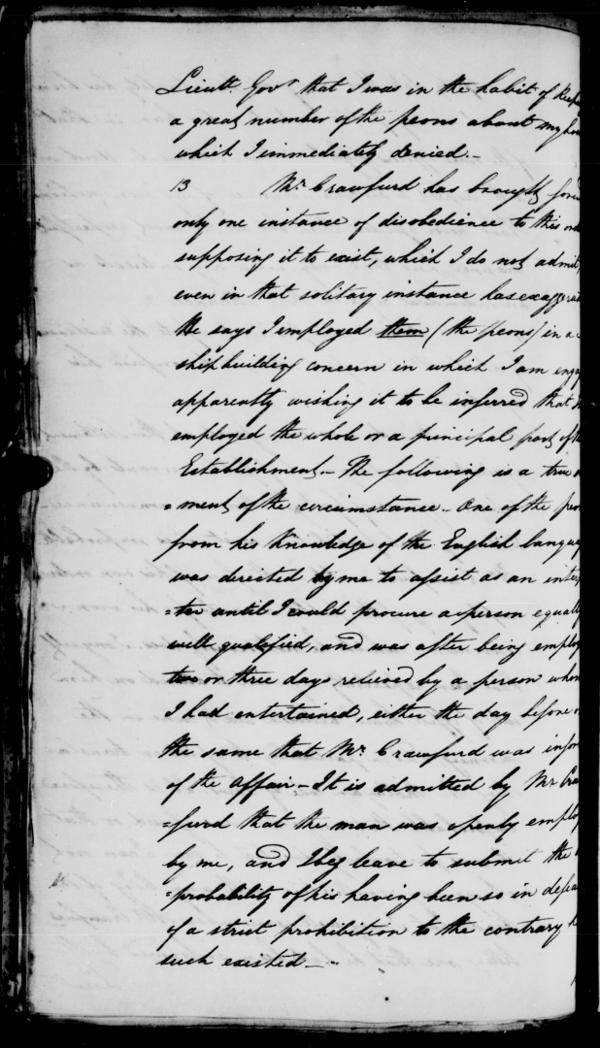 Lieutt. Govr. that I was in the habit of keep
a great number of the peons about my hou
which I immediately denied.-
13 Mr. Crawfurd has brought forw
only one instance of disobedience to this ord
supposing it to exist, which I do not admit,
even in that solitary instance has exaggerat
He says I employed them (the peons) in a
shipbuilding concern in which I am engag
apparently wishing it to be inferred that
employed the whole or a principal part of th
Establishment.- The following is a true
=ment of the circumstance - One of the peon
from his Knowledge of the English languag
was directed by me to assist as an inter
=ter until I could procure a person equally
well qualified, and was after being employ
two or three days relieved by a person whom
I had entertained, either the day before o
the same that Mr. Crawfurd was infor
of the affair - It is admitted by Mr. Craw
=furd that the man was openly employ
by me, and I beg leave to submit the
=probability of his having been so in defia
of a strict prohibition to the contrary h
such existed -